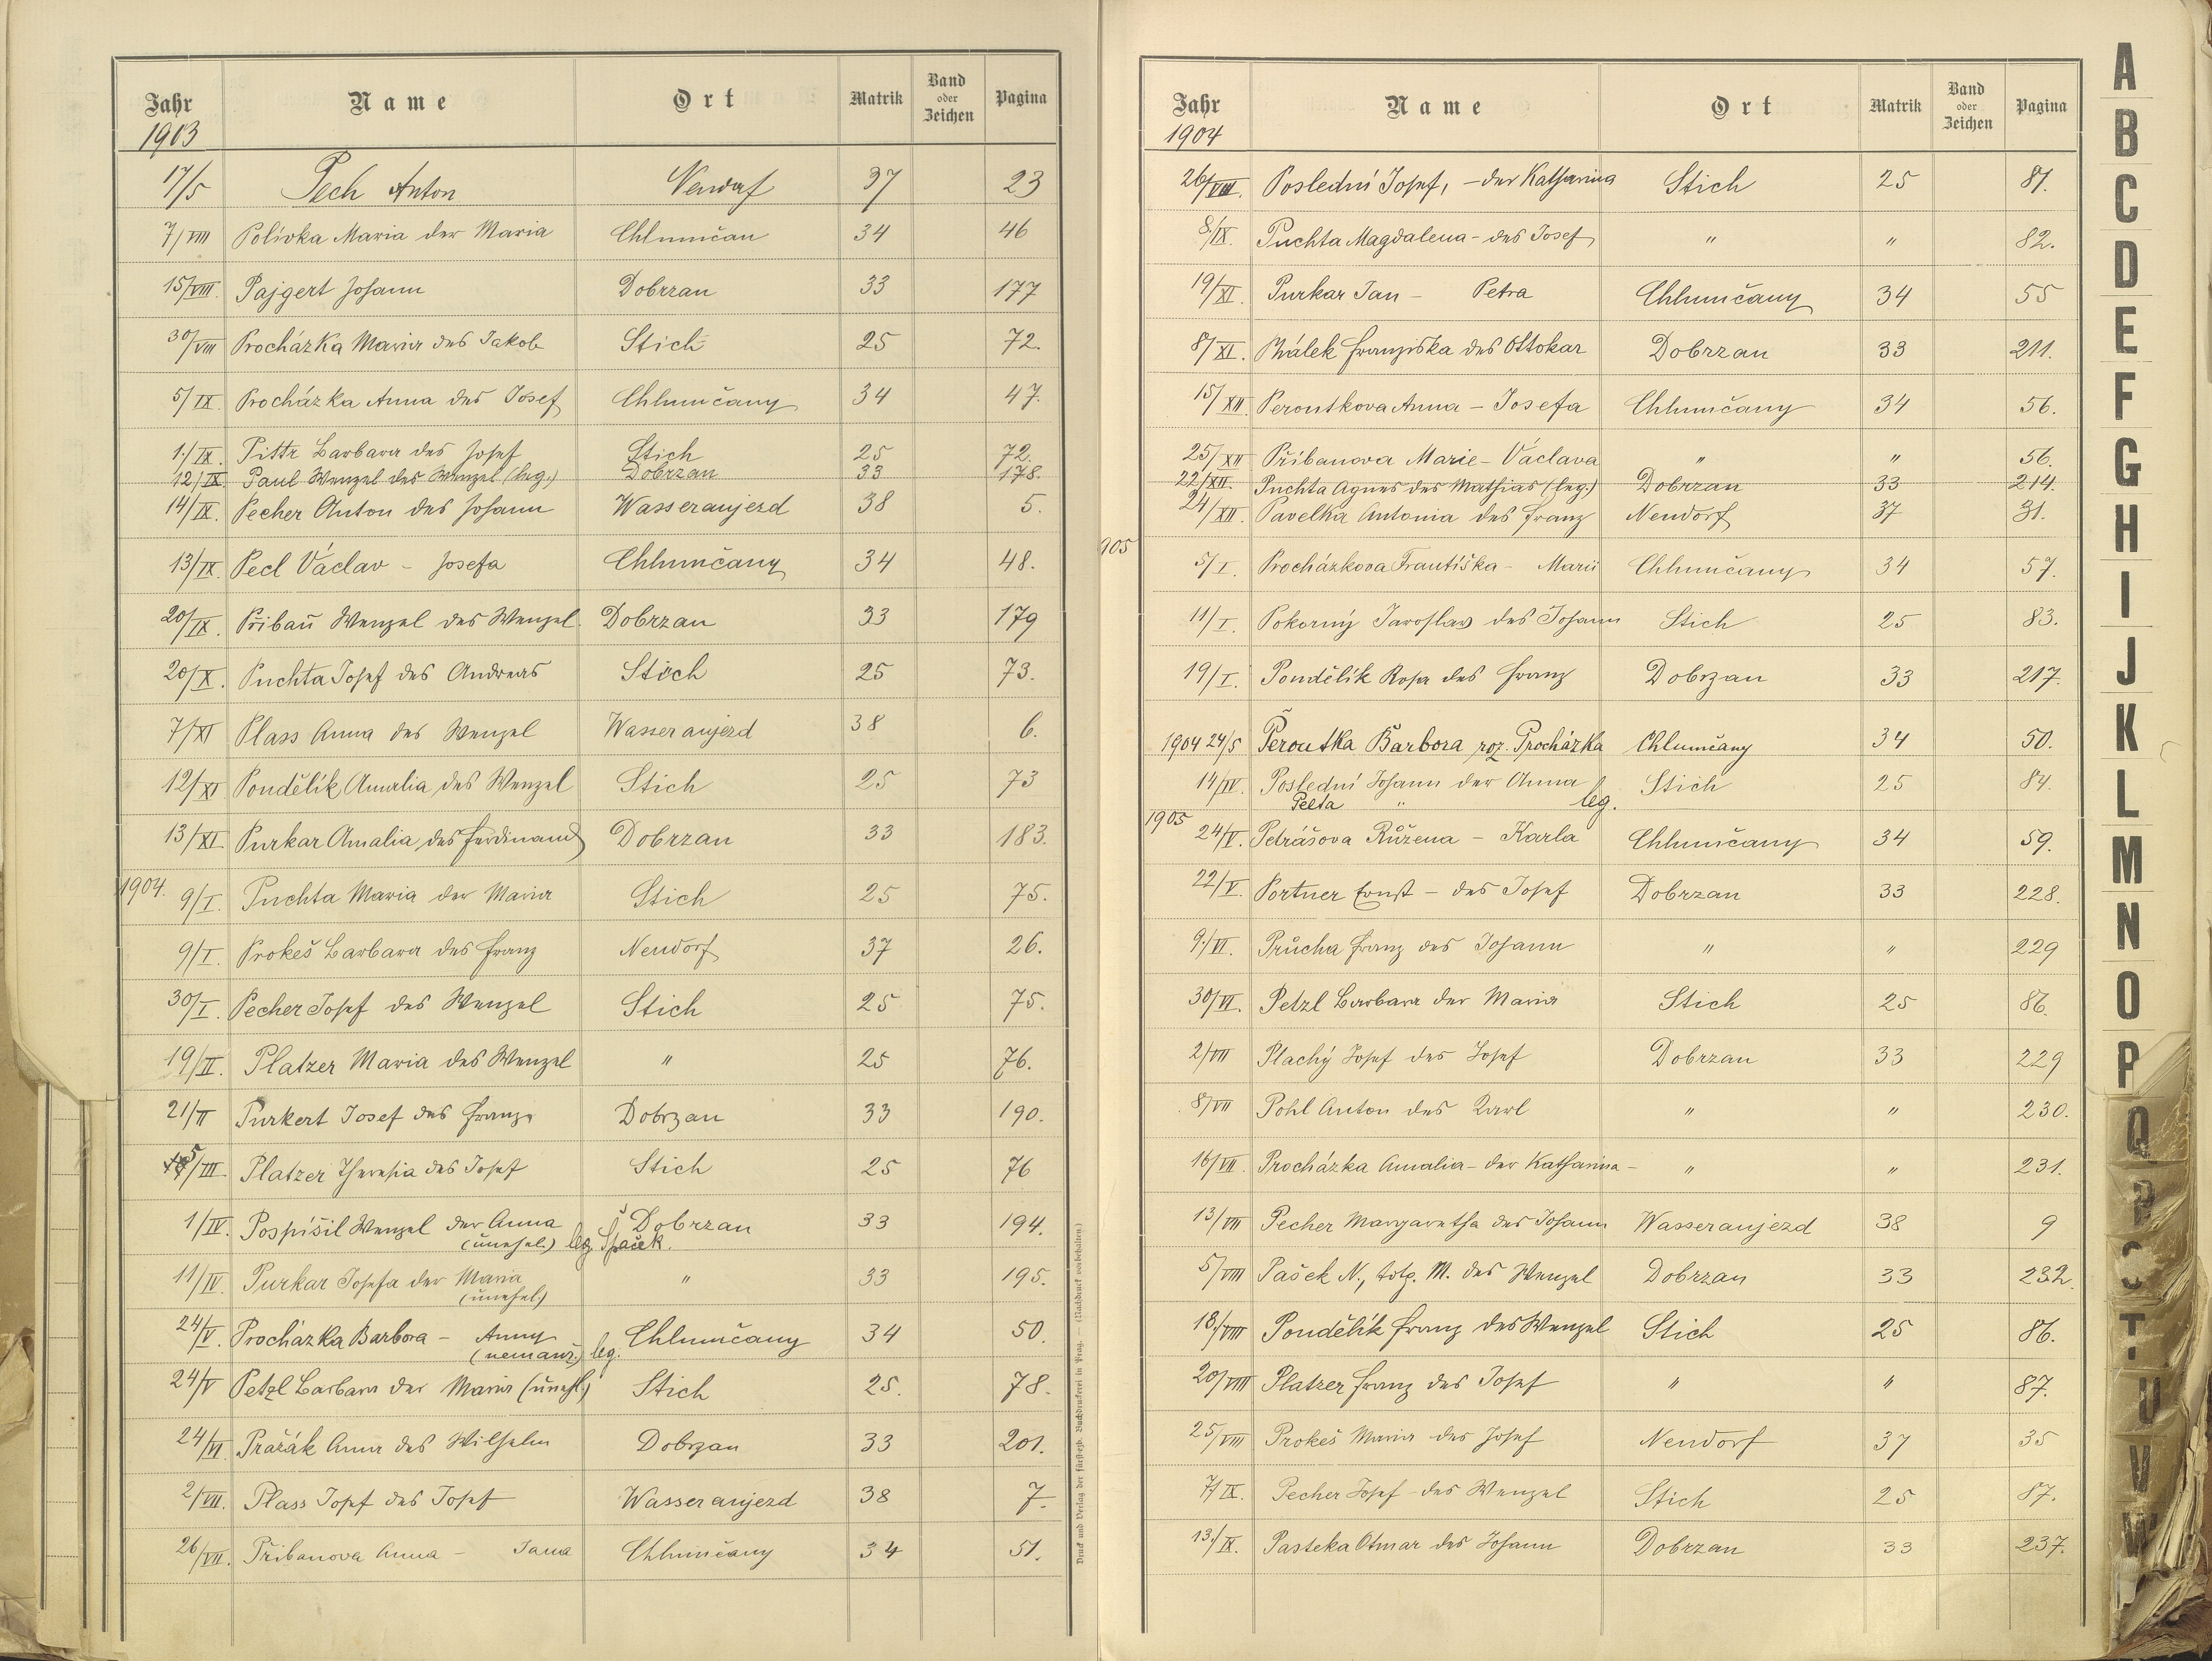 Jahr Name Ort Matrik Band oder Zeichen Pagina
1903
17/5 Pech Anton Neudorf 37 23
7/VIII Polívka Maria der Maria Chlumčan 34 46
15/VIII. Pajgert Johann Dobrzan 33 177
30/VIII Procházka Maria des Jakob Stich 25 72.
5/IX. Procházka Anna des Josef Chlumčany 34 47.
1./IX. Pittr Barbara des Josef Stich 25 72.
12/IX. Paul Wenzel des Wenzel (leg.) Dobrzan 33 178.
14/IX. Pecher Anton des Johann Wasseraujezd 38 5.
13/IX. Pecl Václav - Josefa Chlumčany 34 48.
20/IX. Přibaň Wenzel des Wenzel. Dobrzan 33 179
20/X. Puchta Josef des Andreas Stich 25 73.
7/XI Plass Anna des Wenzel Wasseraujezd 38 6.
12/XI. Pondělík Amalia des Wenzel Stich 25 73
13/XI. Purkar Amalia des Ferdinand Dobrzan 33 183.
1904. 9/I. Puchta Maria der Maria Stich 25 75.
9/I. Prokeš Barbara des Franz Neudorf 37 26.
30/I. Pecher Josef des Wenzel Stich 25 75.
19/II. Platzer Maria des Wenzel " 25 76.
21/II Purkert Josef des Franz Dobrzan 33 190.
5/III. Platzer Theresia des Josef Stich 25 76
1/IV. Pospíšil Wenzel der Anna Dobrzan 33 194.
(unehel.) leg. Špaček.
11/IV. Purkar Josefa der Maria " 33 195.
(unehel.)
24/V. Procházka Barbora - Anny Chlumčany 34 50.
(nemanž.) leg.
24/V Petzl Barbara der Maria (unehl.) Stich 25. 78.
24/VI Pražák Anna des Wilhelm Dobrzan 33 201.
2/VII. Plass Josef des Josef Wasseraujezd 38 7.
26/VII. Přibanova Anna - Jana Chlumčany 34 51.
Druck und Verlag der fürsterzb. Buchdruckerei in Prag. — (Nachdruck vorbehalten.)
Jahr Name Ort Matrik Band oder Zeichen Pagina
1904
26/VIII. Poslední Josef, - der Katharina Stich 25 81.
8/IX. Puchta Magdalena - des Josef " " 82.
19/XI. Purkar Jan - Petra Chlumčany 34 55
8/XI. Málek Franziska des Ottokar Dobrzan 33 211.
15/XII Peroutkova Anna - Josefa Chlumčany 34 56.
25/XII Přibanova Marie - Václava " " 56.
22/XII. Puchta Agnes des Mathias (leg.) Dobrzan 33 214.
24/XII. Pavelka Antonia des Franz Neudorf 37 31.
905
5/I. Procházkova Františka - Marii Chlumčany 34 57.
11/I. Pokorný Jaroslav des Johann Stich 25 83.
19/I. Pondělík Rosa des Franz Dobrzan 33 217.
1904 24/5 Peroutka Barbora roz. Procházka Chlumčany 34 50.
14/IV. Poslední Johann der Anna Stich 25 84.
Pelta " leg.
1905
24/V. Petrášova Růžena - Karla Chlumčany 34 59.
22/V. Portner Ernst - des Josef Dobrzan 33 228.
9./VI. Průcha Franz des Johann " " 229
30/VI. Petzl Barbara der Maria Stich 25 86.
2/VII Plachý Josef des Josef Dobrzan 33 229
8/VII Pohl Anton des Karl " " 230.
16/VII. Procházka Amalia - der Katharina - " " 231.
13/VIII Pecher Margaretha des Johann Wasseraujezd 38 9
5/VIII Pašek N., totg. M. des Wenzel Dobrzan 33 232.
18./VIII Pondělík Franz des Wenzel Stich 25 86.
20/VIII Platzer Franz des Josef " " 87.
25/VIII Prokeš Maria des Josef Neudorf 37 35
7/IX. Pecher Josef - des Wenzel Stich 25 87.
13./IX. Pasteka Otmar des Johann Dobrzan 33 237.
A
B
C
D
E
F
G
H
I
J
K
L
M
N
O
P
Q
R
S
T
U
V
W